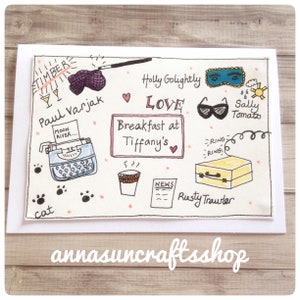 TIMBER
Holly Golightly
LOVE
Paul Varjak
Sally
Tomato
MOON
RIVER
Breakfast at
Tiffany's
RING
RING
NEWS
Rusty Trawler
cat
annasuncraftsshop